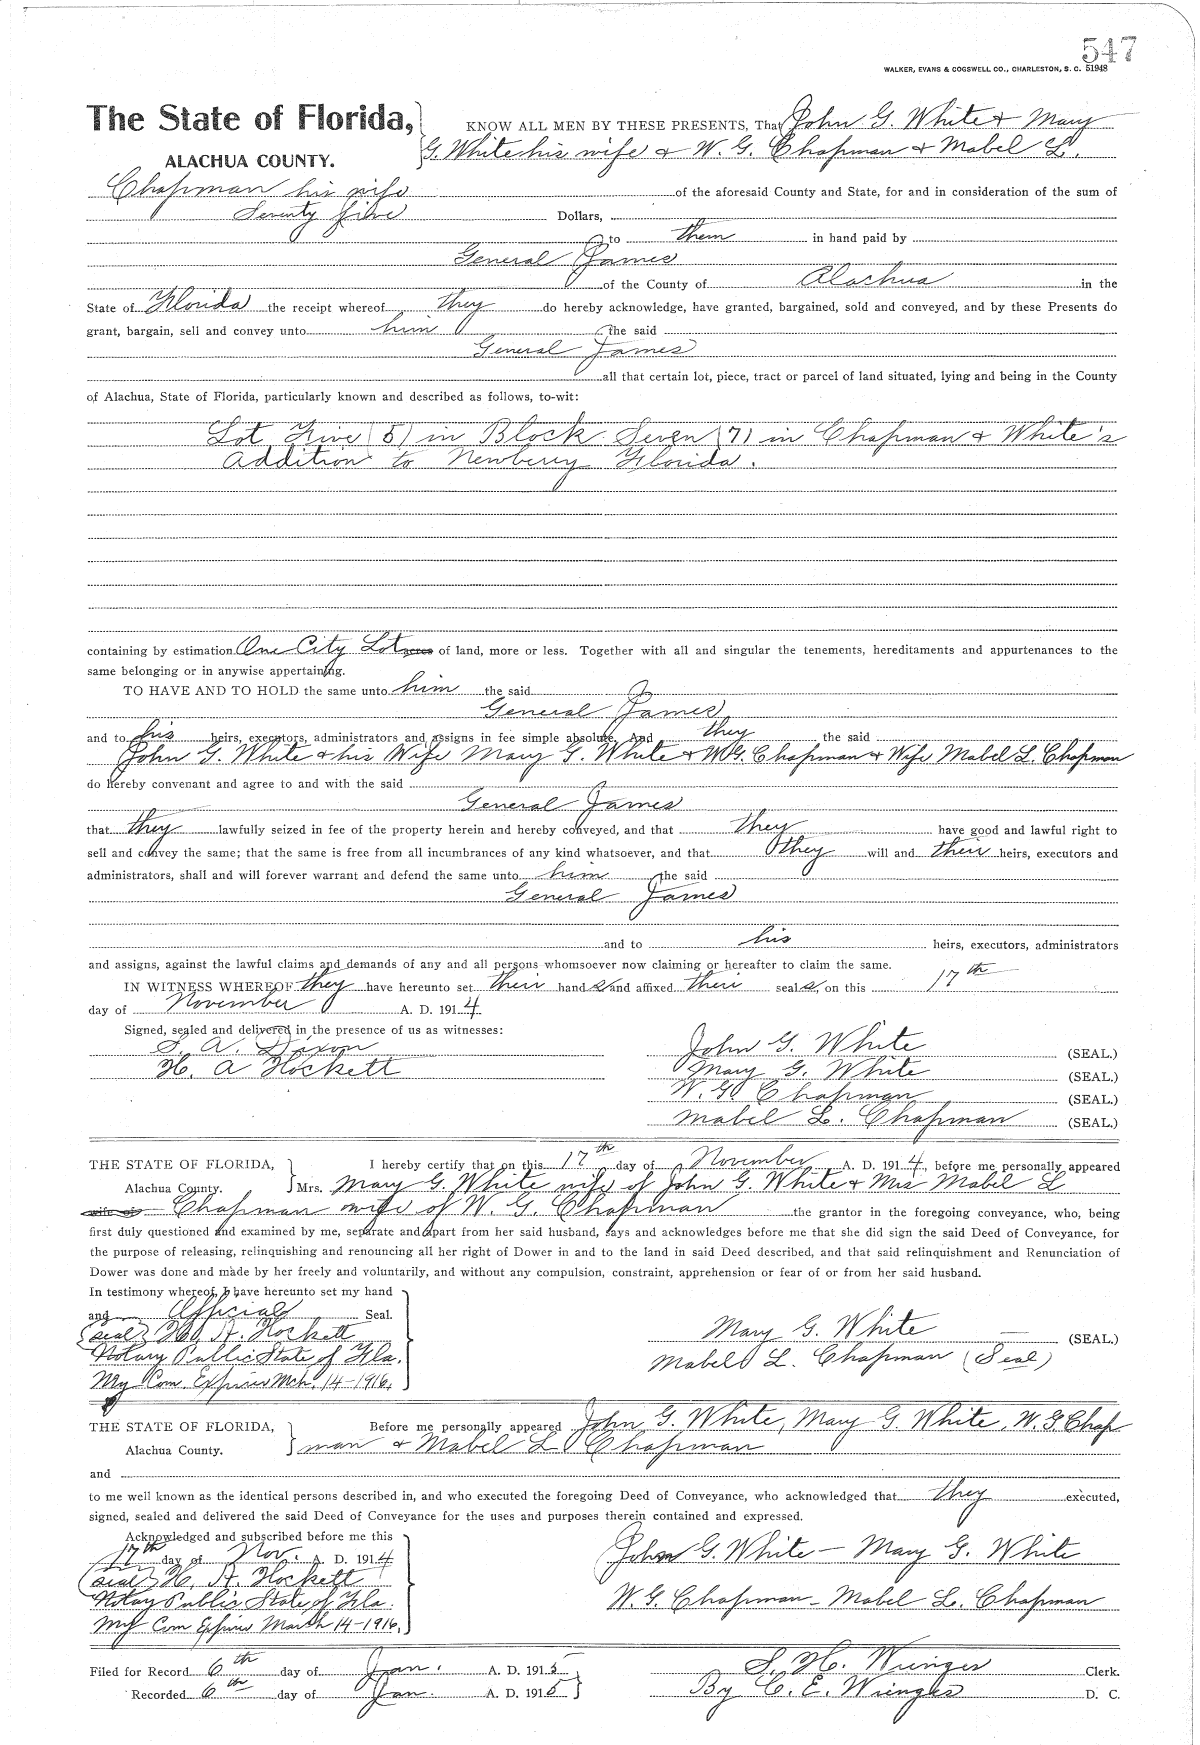 547
WALKER, EVANS & COGSWELL CO., CHARLESTON, S. C. 51948
The State of Florida, KNOW ALL MEN BY THESE PRESENTS, That John G. White & Mary
ALACHUA COUNTY. G. White his wife & W. G. Chapman & Mabel L.
Chapman his wife of the aforesaid County and State, for and in consideration of the sum of
Seventy five Dollars,
to them in hand paid by
General James
of the County of Alachua in the
State of Florida the receipt whereof they do hereby acknowledge, have granted, bargained, sold and conveyed, and by these Presents do
grant, bargain, sell and convey unto him the said
General James
all that certain lot, piece, tract or parcel of land situated, lying and being in the County
of Alachua, State of Florida, particularly known and described as follows, to-wit:
Lot Five (5) in Block Seven (7) in Chapman & White's
Addition to Newberry Florida.
containing by estimation One City Lot acres of land, more or less. Together with all and singular the tenements, hereditaments and appurtenances to the
same belonging or in anywise appertaining.
TO HAVE AND TO HOLD the same unto him the said
General James
and to his heirs, executors, administrators and assigns in fee simple absolute. And they the said
John G. White & his Wife Mary G. White & W.G. Chapman & Wife Mabel L. Chapman
do hereby convenant and agree to and with the said
General James
that they lawfully seized in fee of the property herein and hereby conveyed, and that they have good and lawful right to
sell and convey the same; that the same is free from all incumbrances of any kind whatsoever, and that they will and their heirs, executors and
administrators, shall and will forever warrant and defend the same unto him the said
General James
and to his heirs, executors, administrators
and assigns, against the lawful claims and demands of any and all persons whomsoever now claiming or hereafter to claim the same.
IN WITNESS WHEREOF they have hereunto set their hands and affixed their seals, on this 17th
day of November A. D. 1914
Signed, sealed and delivered in the presence of us as witnesses:
S. A. Dixon
H. A Hockett
John G. White (SEAL.)
Mary G. White (SEAL.)
W. G. Chapman (SEAL.)
Mabel L. Chapman (SEAL.)
THE STATE OF FLORIDA, I hereby certify that on this 17th day of November A. D. 1914, before me personally appeared
Alachua County. Mrs. Mary G. White wife of John G. White & Mrs Mabel L
wife of Chapman wife of W. G. Chapman the grantor in the foregoing conveyance, who, being
first duly questioned and examined by me, separate and apart from her said husband, says and acknowledges before me that she did sign the said Deed of Conveyance, for
the purpose of releasing, relinquishing and renouncing all her right of Dower in and to the land in said Deed described, and that said relinquishment and Renunciation of
Dower was done and made by her freely and voluntarily, and without any compulsion, constraint, apprehension or fear of or from her said husband.
In testimony whereof, I have hereunto set my hand
and Official Seal.
(seal) H. A. Hockett
Notary Public State of Fla.
My Com. Expires Mch. 14-1916.
Mary G. White (SEAL.)
Mabel L. Chapman (Seal)
THE STATE OF FLORIDA, Before me personally appeared John G. White, Mary G. White, W. G Chap
Alachua County. man & Mabel L Chapman
and
to me well known as the identical persons described in, and who executed the foregoing Deed of Conveyance, who acknowledged that they executed,
signed, sealed and delivered the said Deed of Conveyance for the uses and purposes therein contained and expressed.
Acknowledged and subscribed before me this
17th day of Nov. A. D. 1914
(seal) H. A. Hockett
Notary Public State of Fla.
My Com Expires March 14-1916.
John G. White - Mary G. White
W. G. Chapman - Mabel L. Chapman
Filed for Record 6th day of Jan. A. D. 1915
Recorded 6th day of Jan. A. D. 1915
S. H. Wienges Clerk.
By C. E. Wienges D. C.